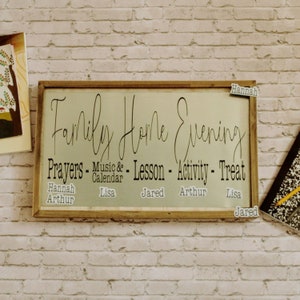 Hannah
Family Home Evening
Prayers - Music & Calendar - Lesson - Activity - Treat
Hannah Lisa Jared Arthur Lisa
Arthur
Jared